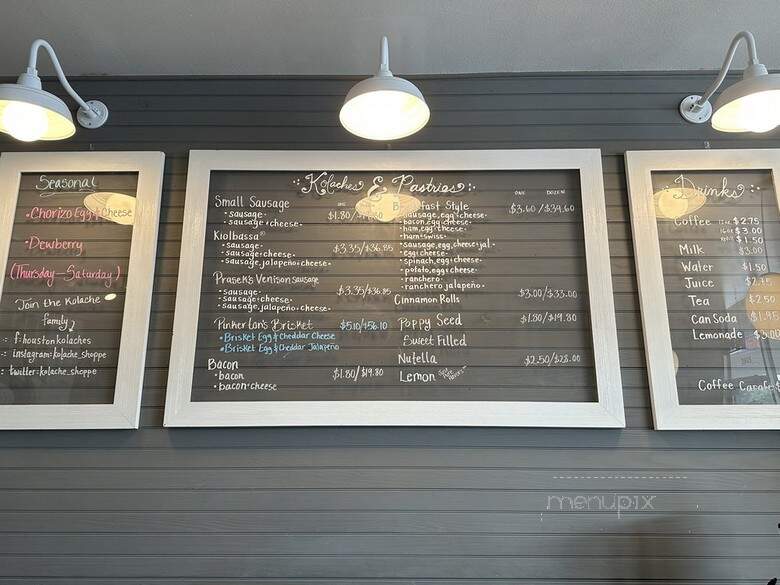 Seasonal
• Chorizo Egg & Cheese
• Dewberry
(Thursday - Saturday)
Join the Kolache
family
- f: houstonkolaches
- instagram: kolache_shoppe
- twitter: kolache_shoppe
Kolaches & Pastries
ONE DOZEN
Small Sausage $1.80/
• sausage •
• sausage + cheese •
Kiolbassa $3.35/$36.85
• sausage •
• sausage + cheese •
• sausage, jalapeño + cheese •
Prasek's Venison sausage $3.35/$36.85
• sausage •
• sausage + cheese •
• sausage, jalapeño + cheese •
Pinkerton's Brisket $5.10/$56.10
• Brisket Egg & Cheddar Cheese
• Brisket Egg & Cheddar Jalapeño
Bacon $1.80/$19.80
• bacon
• bacon + cheese
Style $3.60/$39.60
sausage, egg + cheese •
• bacon, egg + cheese •
ham, egg + cheese •
• ham + swiss •
• sausage, egg, cheese + jal •
• egg + cheese •
• spinach, egg + cheese •
• potato, egg + cheese •
• ranchero •
• ranchero jalapeño •
Cinnamon Rolls $3.00/$33.00
Poppy Seed $1.80/$19.80
Sweet Filled
Nutella $2.50/$28.00
Lemon
Drinks
Coffee 12oz $2.75
16oz $3.00
$1.50
Milk $3.00
Water $1.50
Juice
Tea $2.50
Can Soda $1.95
Lemonade $3.00
Coffee Carafe
menupix